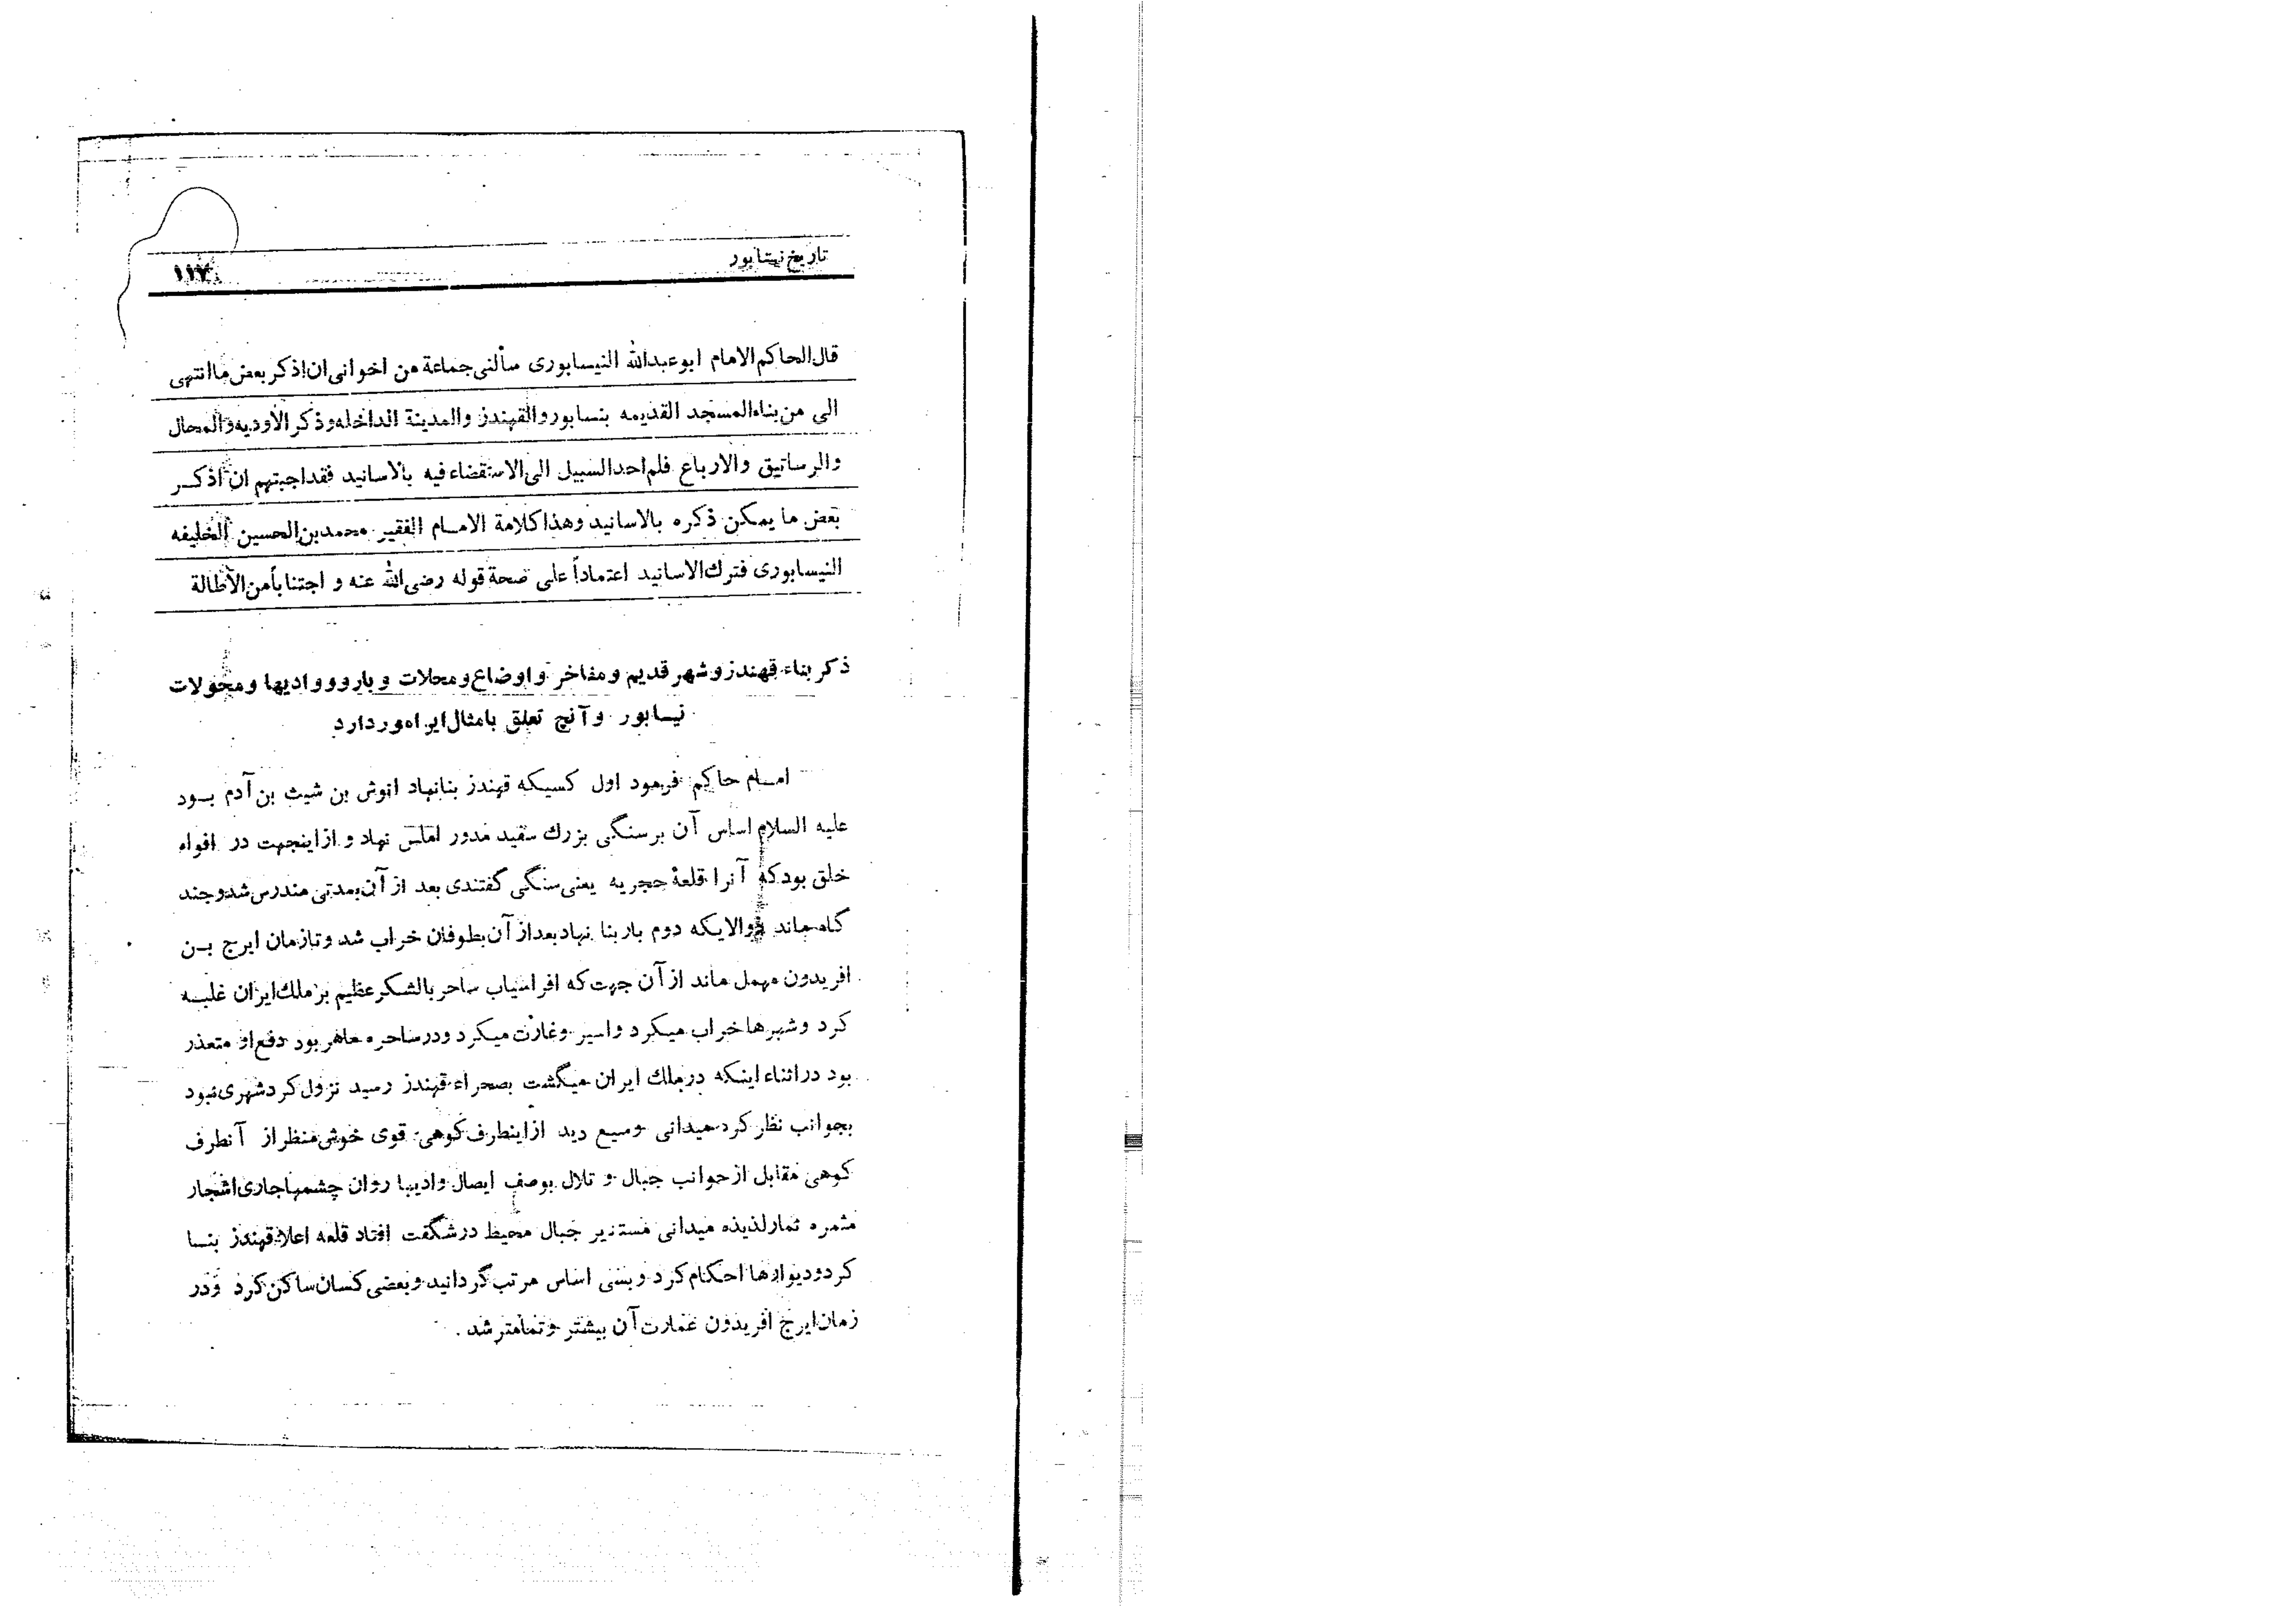 تاریخ نیشابور
۱۱۷
قال الحاکم الامام ابوعبدالله النیسابوری سألنی جماعة من اخوانی ان اذکر بعض ما انتهی
الی من بناء المسجد القدیمه بنسابور والقهندز والمدینة الداخله وذکر الاودیه والمحال
والرساتیق والارباع فلم احد السبیل الی الاستقضاء فیه بالاسانید فقد اجبتهم ان اذکر
بعض ما یمکن ذکره بالاسانید وهذا کلامة الامام الفقیر محمد بن الحسین الخلیفه
النیسابوری فترك الاسانید اعتماداً علی صحة قوله رضی الله عنه و اجتناباً من الأطالة
ذکر بناء قهندز و شهر قدیم و مفاخر و اوضاع و محلات و بارو و وادیها و محولات
نیسابور و آنچ تعلق بامثال این امور دارد
امام حاکم فرمود اول کسیکه قهندز بنا نهاد انوش بن شیث بن آدم بود
علیه السلام اساس آن بر سنگی بزرك سفید مدور املس نهاد و از اینجهت در افواه
خلق بود که آنرا قلعهٔ حجریه یعنی سنگی گفتندی بعد از آن بمدتی مندرس شد و چند
گاه ماند والایکه دوم بار بنا نهاد بعد از آن بطوفان خراب شد و تا زمان ایرج بن
افریدون مهمل ماند از آن جهت که افراسیاب ساحر بالشکر عظیم بر ملك ایران غلبه
کرد و شهرها خراب میکرد و اسیر و غارت میکرد و در ساحره ماهر بود دفع او متعذر
بود در اثناء اینکه در ملك ایران میگشت بصحراء قهندز رسید نزول کرد شهری نبود
بجوانب نظر کرد میدانی وسیع دید از اینطرف کوهی قوی خوش منظر از آنطرف
کوهی مقابل از جوانب جبال و تلال بوصف ایصال وادیها روان چشمها جاری اشجار
مثمره ثمار لذیذه میدانی مستدیر جبال محیط در شگفت افتاد قلعه اعلا قهندز بنا
کرد و دیوارها احکام کرد و بنی اساس مرتب گردانید و بعضی کسان ساکن کرد و در
زمان ایرج افریدون عمارت آن بیشتر و تمامتر شد .